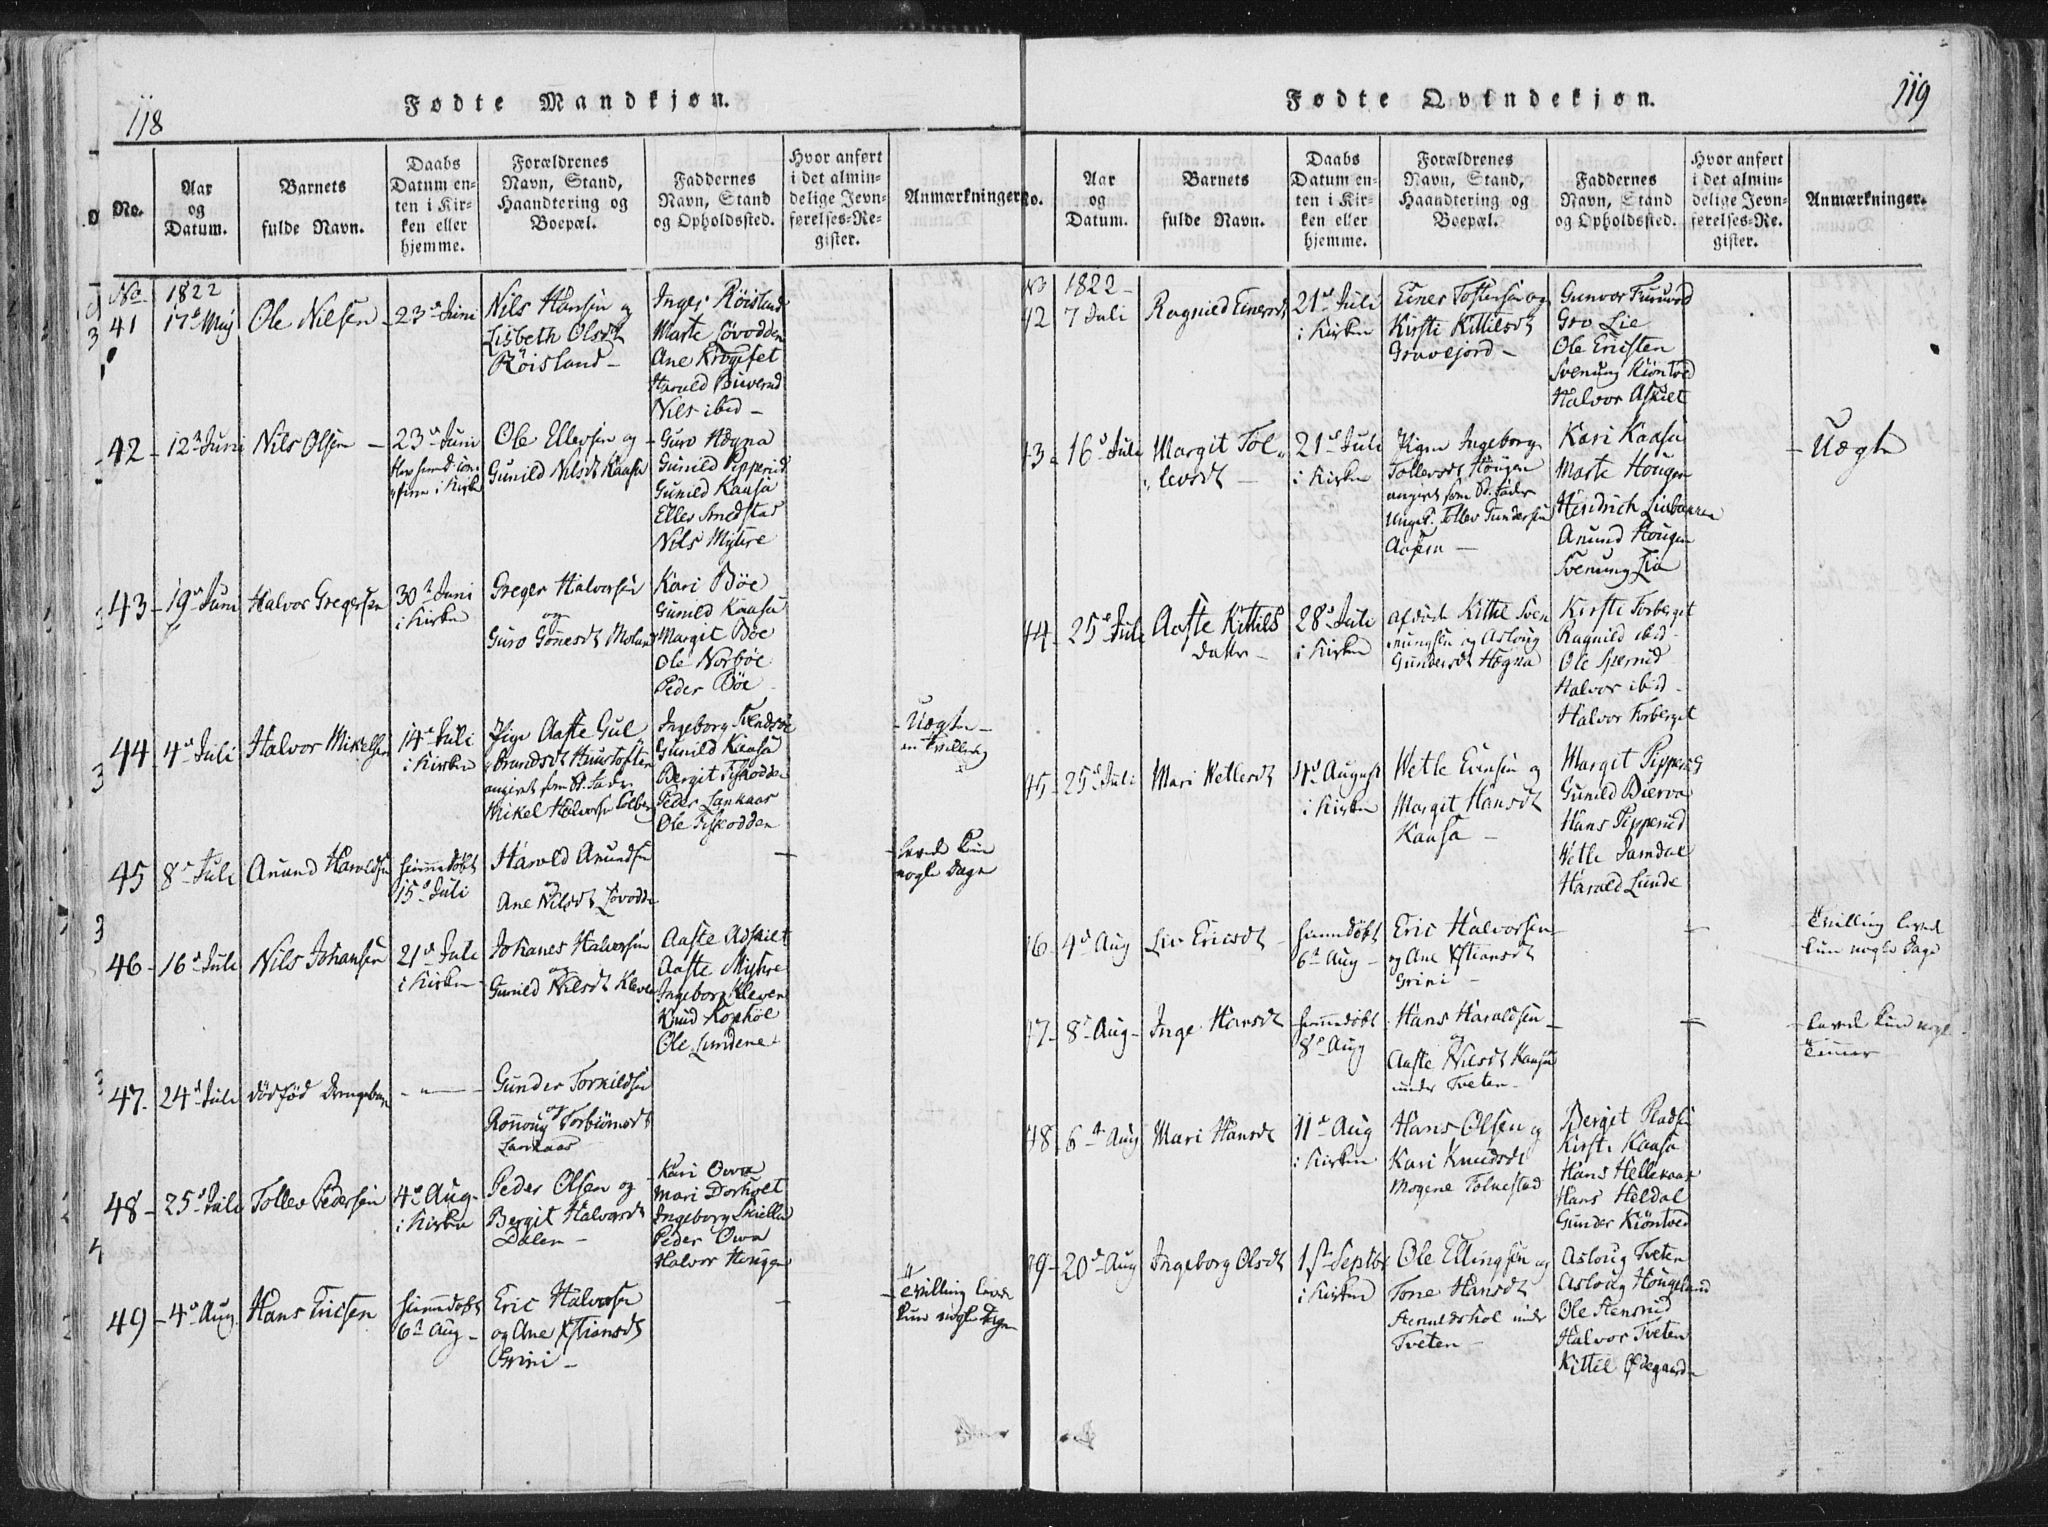 118
Fødte Mandkjøn.
No.
Aar og Datum.
Barnets fulde Navn.
Daabs Datum enten i Kirken eller hjemme.
Forældrenes Navn, Stand, Haandtering og Boepæl.
Faddernes Navn, Stand og Opholdssted.
Hvor anført i det almindelige Jevnførelses-Register.
Anmærkninger.
No 1822
41
17d Maj
Ole Nilsen
23d Juni
Nils Hansen og
Lisbeth Olsdt
Röisland
Inger Röisland
Marte Lövodden
Ane
Harald
Nils ibid
42
12 Juni
Nils Olsen
23d Juni
i Kirke
Ole Ellevsen og
Gunild Nilsdt Kaasa
Guro Hægna
Gunild Pipperud
Gunild Kaasa
Ellev Smedstad
Nils Myhre
43
19d Juni
Halvor Gregersen
30t Juni
i Kirken
Greger Halvorsen
og
Guro Gonesdt Moland
Kari Böe
Gunild Kaasa
Margit Böe
Ole Norböe
Peder Böe
44
4d Juli
Halvor Mikkelsen
14d Juli
i Kirken
Pige Aaste Gul
brandsdt
angivet som B. Fader
Mikel Halvorsen
Ingeborg
Gunild Kaasa
Bergit Fiskodden
Peder Lankaas
Ole Fiskodden
Uægte
en Tvilling
45
8d Juli
Anund Haroldsen
hiemmedöbt
15d Juli
Harold Anundsen
og
Ane Nilsdt Lövodde
levede kun
nogle Dage
46
16d Juli
Nils Johansen
21d Juli
i Kirken
Johanes Halvorsen
og
Gunild Nilsdt Kleven
Aaste Adskilt
Aaste Myhre
Ingeborg Kleven
Knud Kophöl
Ole Lundene
47
24d Juli
dödföd Drengebarn
Gunder Torkildsen
og
Ronoug Torbiörnsdt
Lankaas
48
25d Juli
Tollev Pedersen
4d Aug
i Kirken
Peder Olsen og
Bergit Halvorsdt
Dalen
Kari Owra
Mari Dorholt
Ingeborg
Peder Owra
Halvor Hougen
49
4d Aug
Hans Ericsen
hiemmedöbt
6t Aug
Eric Halvorsen
og Ane Xstiansdt
Grini
Tvilling levede
kun nogle Dage
119
Fødte Qvindekjøn.
No.
Aar og Datum.
Barnets fulde Navn.
Daabs Datum enten i Kirken eller hjemme.
Forældrenes Navn, Stand, Haandtering og Boepæl.
Faddernes Navn, Stand og Opholdssted.
Hvor anført i det almindelige Jevnførelses-Register.
Anmærkninger.
1822
42
7 Juli
Ragnild Einersdt
21d Juli
i Kirken
Einer Tostensen og
Kirsti Kittilsdt
Gravejord
Gunvor Furuvold
Gro Lie
Ole Ericsten
Svenung Kiöntved
Halvor Askilt
43
16d Juli
Margit Tol
levsdt
21d Juli
i Kirken
Pigen Ingeborg
Tollevsdt Hougen
angivet som B. Fader
Ungk. Tollev Gundersen
Aasen
Kari Kaasa
Marte Hougen
Heidrich
Anund Hougen
Svenung Lia
Uægte
44
25d Juli
Aaste Kittils
datter
28d Juli
i Kirken
afdöde Kittel Sven
nungsen og Asloug
Gundersdt Hægna
Kirsti Forberget
Ragnild ibid
Ole
Halvor ibid
Halvor Forberget
45
25d Juli
Mari Wetlesdt
4d August
i Kirken
Wetle Evensen og
Margit Hansdt
Kaasa
Margit Pipperud
Gunild Bierva
Hans Pipperud
Wetle Jamdal
Harald Lunde
46
4d Aug
Liv Ericsdt
hiemmedöbt
6t Aug
Eric Halvorsen
og Ane Xstiansdt
Grini
Tvilling levede
kun nogle Dage
47
8d Aug
Inge Hansdt
hiemmedöbt
8d Aug
Hans Haraldsen
og
Aaste Nilsdt Kaasa
under Tveten
levede kun nogle
Timer
48
6t Aug
Mari Hansdt
11d Aug
i Kirken
Hans Olsen og
Kari Knudsdt
Mogene
Bergit
Kirsti Kaasa
Hans Hellevaar
Hans Heldal
Gunder Kiöntved
49
20d Aug
Ingeborg Olsdt
1ste Septbr
i Kirken
Ole Ellingsen og
Tone Hansdt
under
Tveten
Asloug Tveten
Asloug Hougeland
Ole Stensrud
Halvor Tveten
Kittil Ödegaarden